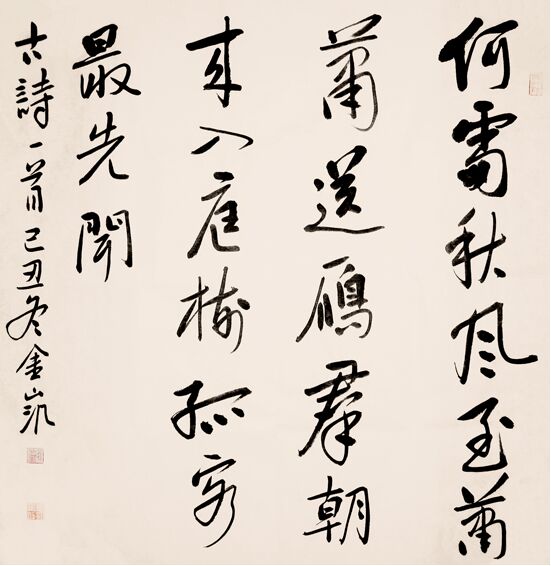 何處秋风至蕭
蕭送鴈羣朝
来入庭樹孤客
最先聞
古詩一首己丑冬金凯